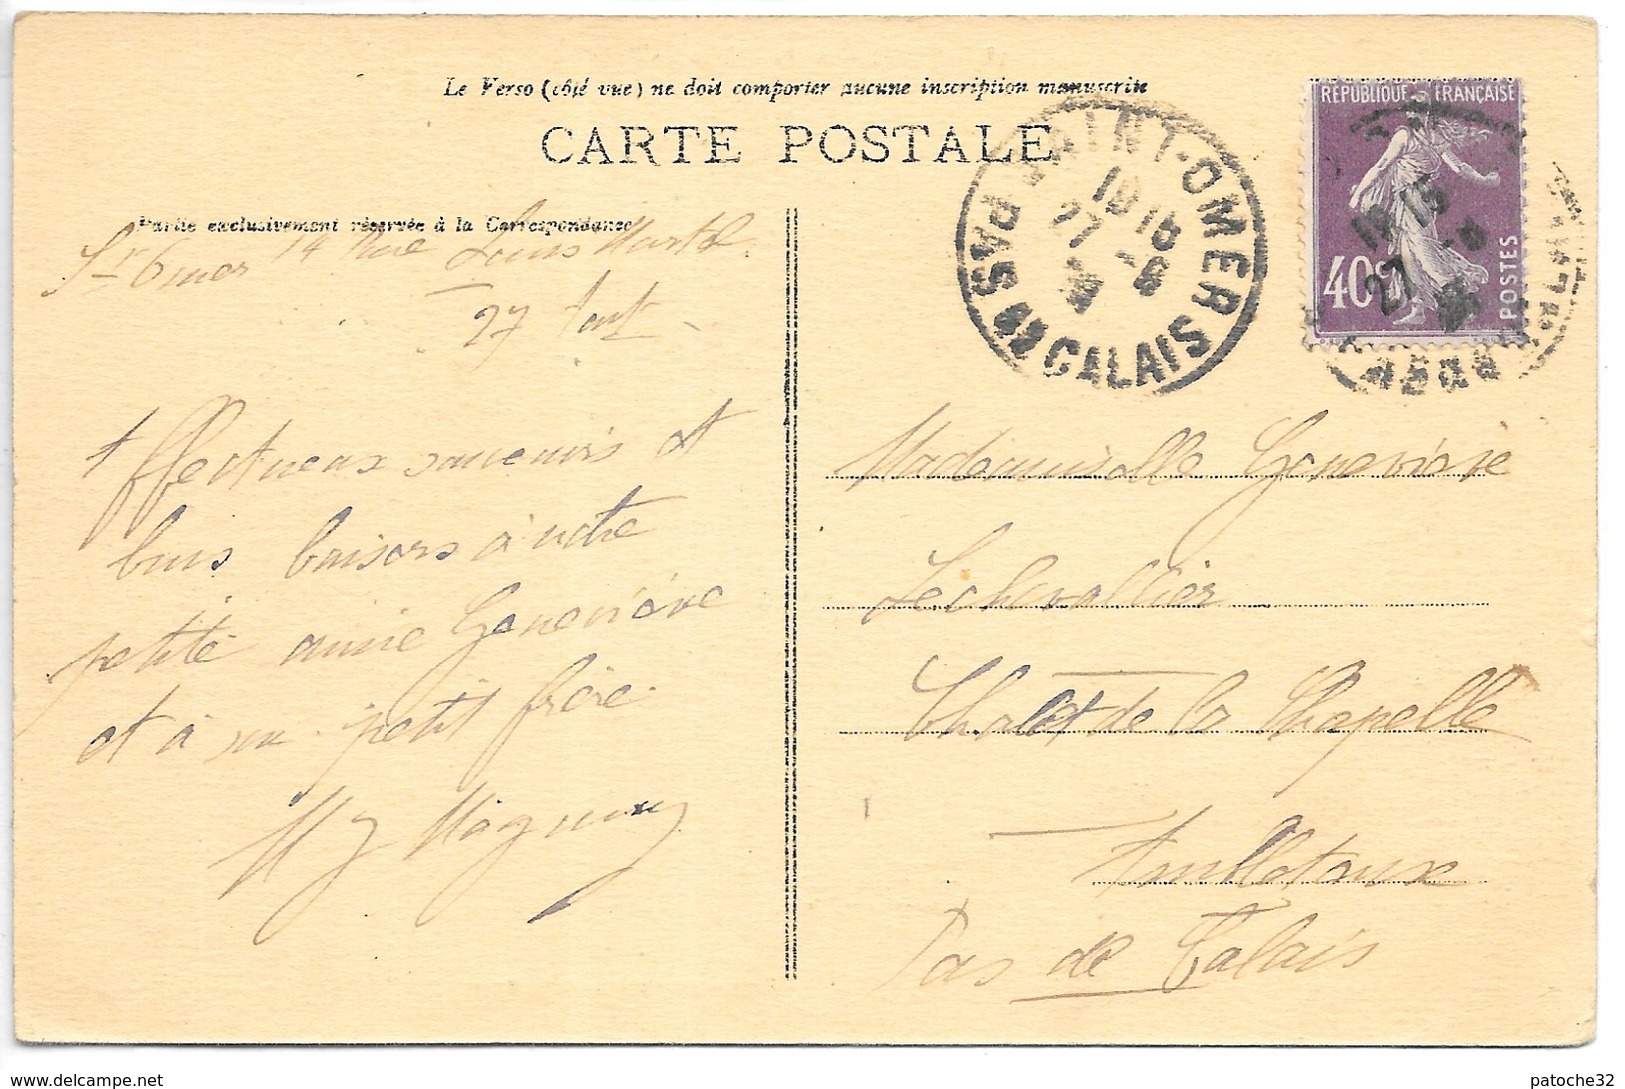 Le Verso (côté vue) ne doit comporter aucune inscription manuscrite
CARTE POSTALE
RÉPUBLIQUE FRANÇAISE
40c
POSTES
SAINT-OMER
PAS DE CALAIS
18 15
27 -8
Partie exclusivement réservée à la Correspondance
St Omer 14 Rue Louis Martel
27 Aout
Affectueux souvenirs et
bons baisers à notre
petite amie Geneviève
et à son petit frère
Mademoiselle Geneviève
Lechevallier
Chalet de la Chapelle
Ambleteuse
Pas de Calais
www.delcampe.net
patoche32